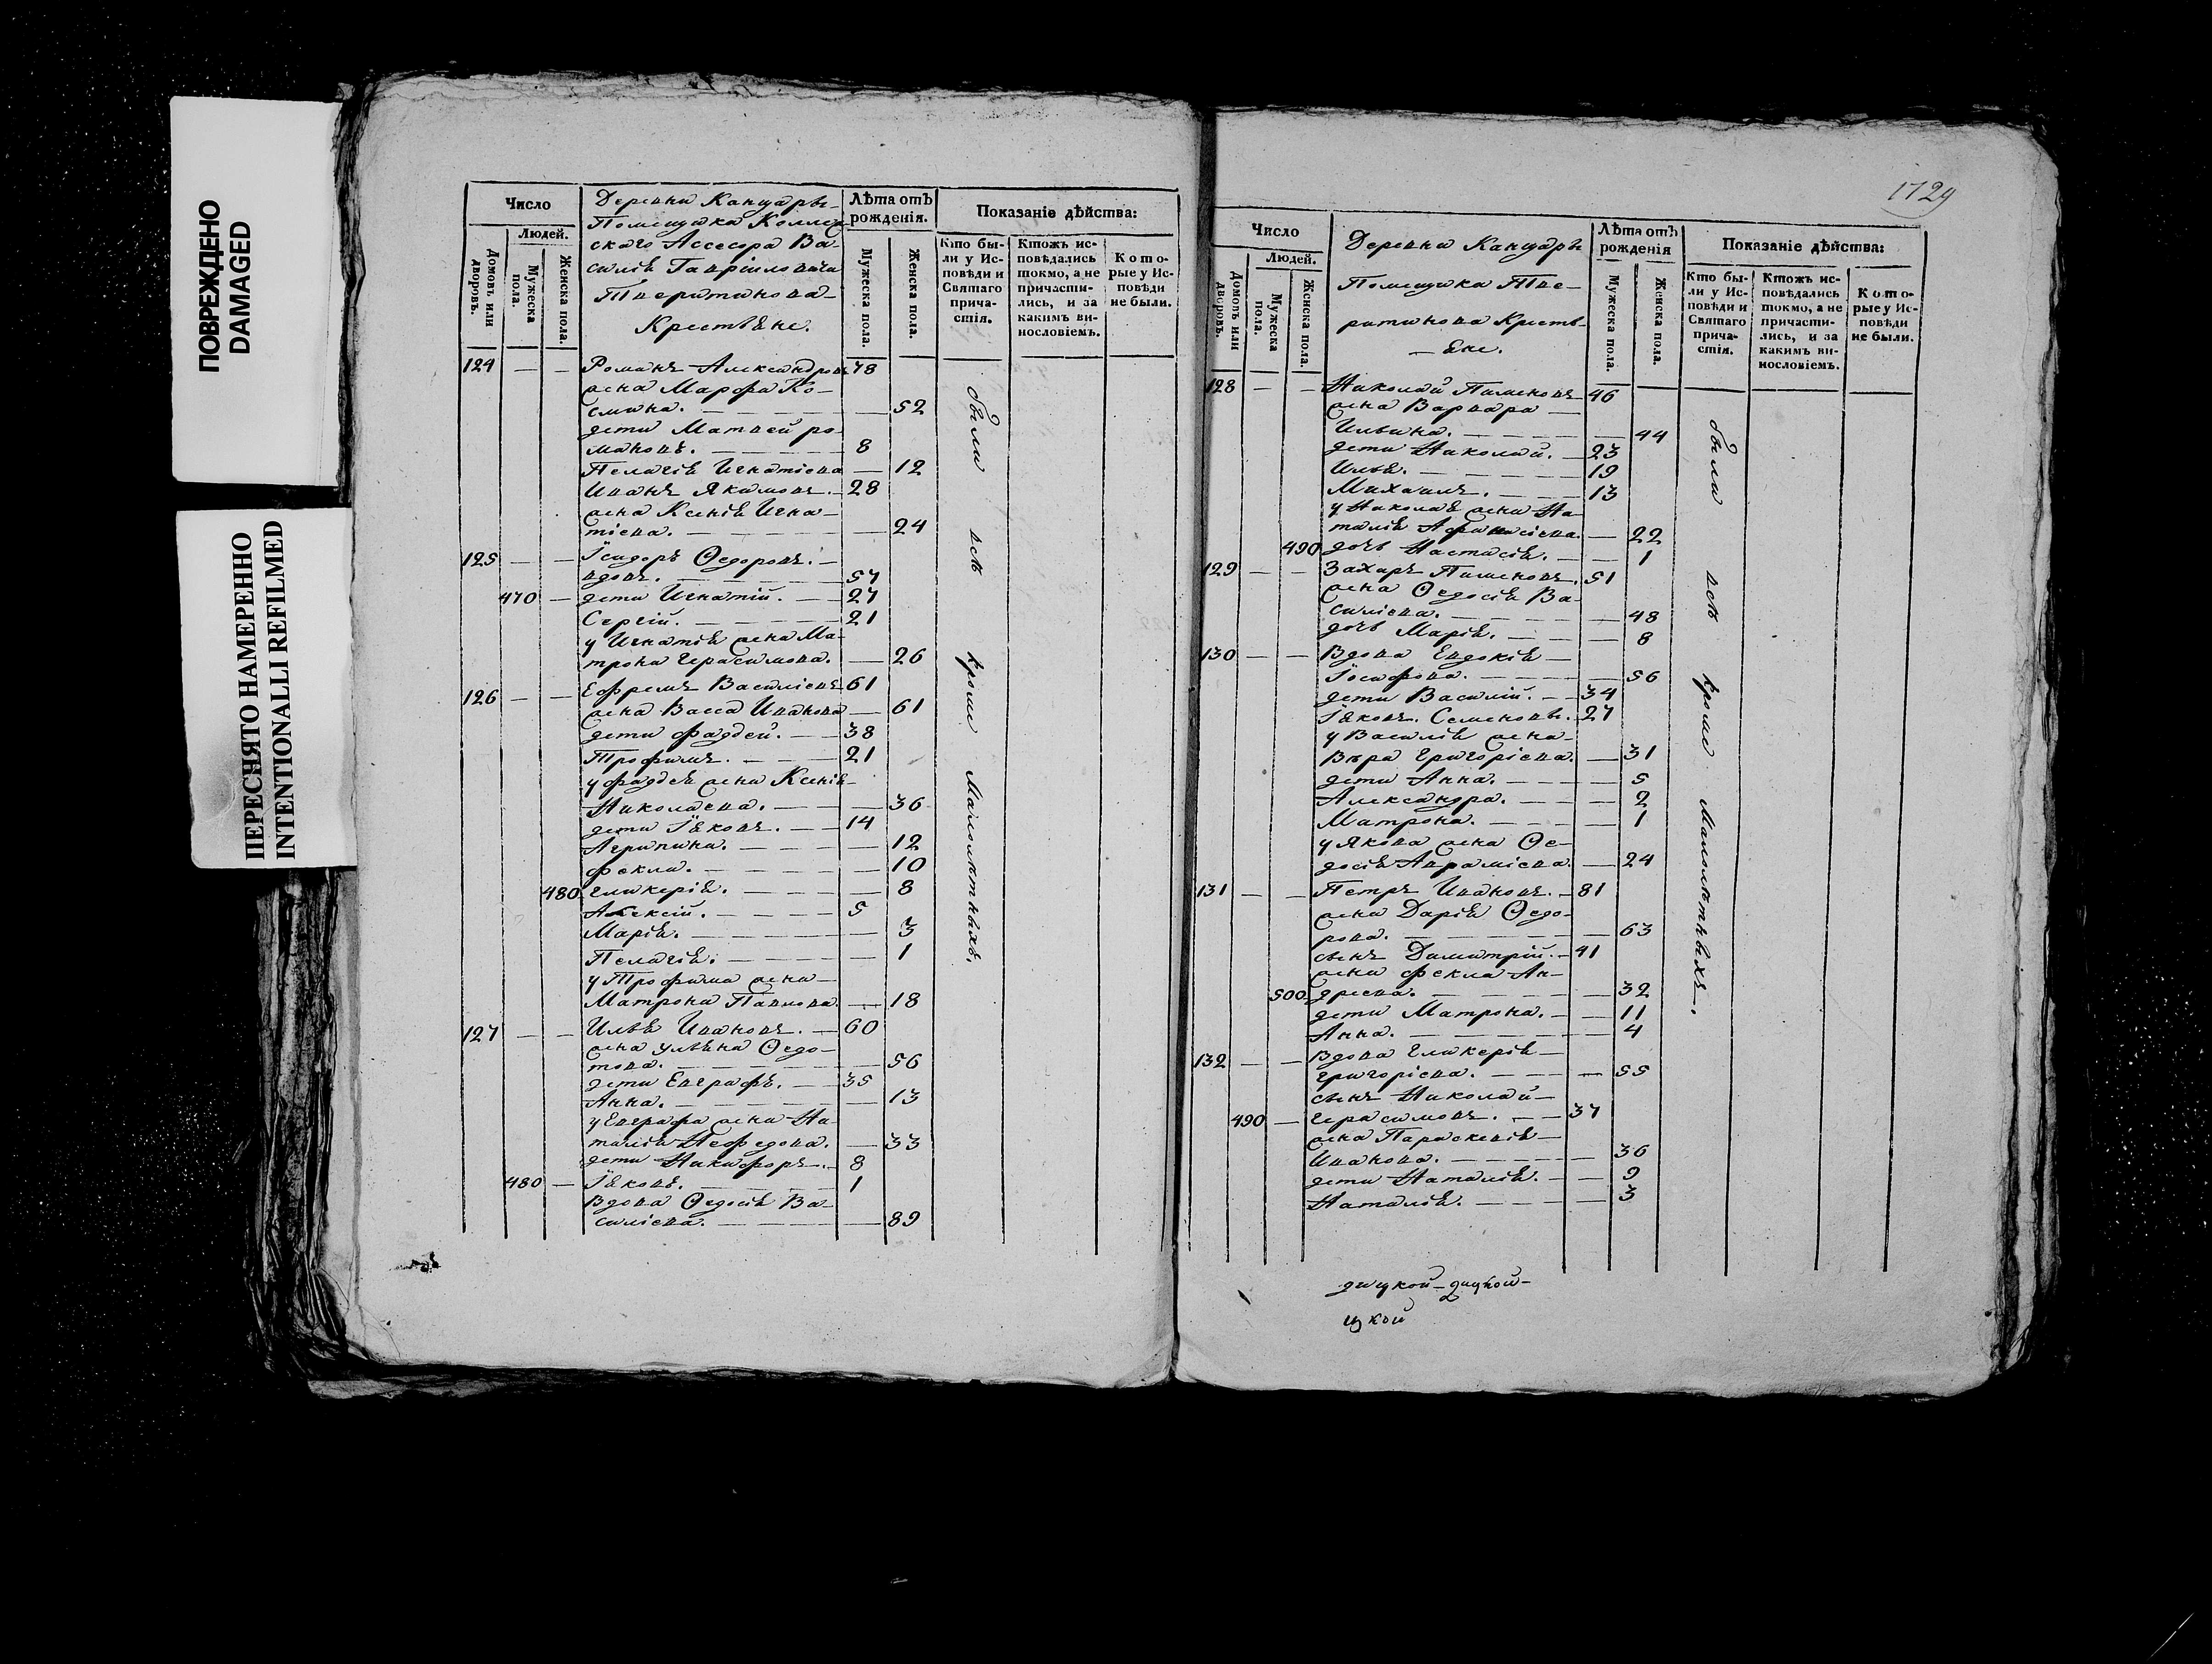 ПОВРЕЖДЕНО
DAMAGED
ПЕРЕСНЯТО НАМЕРЕННО
INTENTIONALLI REFILMED
Число
Людей.
Домовъ или дворовъ.
Мужеска пола.
Женска пола.
Деревни Канцарѣ
Помещика Коллеж
скаго Ассесора Ва-
силія Гавріиловича
Тверитинова
Крестьяне.
Лѣта отъ
рожденія.
Мужеска пола.
Женска пола.
Показаніе дѣйства:
Кто бы-
ли у Ис-
повѣди и
Святаго
прича-
стія.
Ктожъ ис-
повѣдались
токмо, а не
причасти-
лись, и за
какимъ ви-
нословіемъ.
Кото-
рые у Ис-
повѣди
не были.
124 — — Романъ Александровъ 48
жена Марфа Ко-
смина. — 52
дети Матвей ро-
мановъ. — 8
Пелагія Игнатіева — 12
Иванъ Якимовъ. — 28
жена Ксенія Игна-
тіева. — 24
125 — — Ісидоръ Ѳедоровъ. —
вдовъ. — 57
470 — дети Игнатій. — 27
Сергій. — 21
у Игнатія жена Ма-
трона Герасимова. — 26
126 — — Ефремъ Василіевъ 61
жена Васса Иванова — 61
дети Фаддей. — 38
Трофимъ. — 21
у Фаддея жена Ксенія
Николаева. — 36
дети Іяковъ. — 14
Агрипина. — 12
Фекла. — 10
480 Гликерія. — 8
Алексій. — 5
Марія. — 3
Пелагія. — 1
у Трофима жена —
Матрона Павлова. — 18
127 — — Илья Ивановъ. — 60
жена Ульяна Ѳедо-
това. — 56
дети Евграфъ. — 35
Анна. — 13
у Евграфа жена На-
талія Нефедова. — 33
дети Никифоръ. — 8
480 — Іяковъ. — 1
Вдова Ѳедосія Ва-
силіева. — 89
были всѣ кромѣ Малолѣтныхъ.
1729
Число
Людей.
Домовъ или дворовъ.
Мужеска пола.
Женска пола.
Деревни Канцарѣ
Помещика Тве-
ритинова Кресть-
— яне.
Лѣта отъ
рожденія
Мужеска пола.
Женска пола.
Показаніе дѣйства:
Кто бы-
ли у Ис-
повѣди и
Святаго
прича-
стія.
Ктожъ ис-
повѣдались
токмо, а не
причасти-
лись, и за
какимъ ви-
нословіемъ.
Кото-
рые у Ис-
повѣди
не были.
128 — — Николай Пименовъ 46
жена Варвара —
Ильина. — 44
дети Николай. — 23
Илья. — 19
Михаилъ. — 13
у Николая жена На-
талія Афанасіева. — 22
490 дочь Настасія. — 1
129 — — Захаръ Пименовъ. 51
жена Ѳедосія Ва-
силіева. — 48
дочь Марія. — 8
130 — — Вдова Евдокія —
Іосифова. — 56
дети Василій. — 34
Іяковъ. Семеновы. 27
у Василія жена —
Вѣра Григоріева. — 31
дети Анна. — 5
Александра. — 2
Матрона. — 1
у Якова жена Ѳе-
досія Авраміева. — 24
131 — — Петръ Ивановъ. — 81
жена Дарія Ѳедо-
рова. — 63
сынъ Димитрій. — 41
жена Фекла Ан-
500 дреева. — 32
дети Матрона. — 11
Анна. — 4
132 — — Вдова Гликерія —
Григоріева. — 55
сынъ Николай —
490 — Герасимовъ. — 37
жена Параскевія —
Иванова. — 36
дети Наталія. — 9
Наталія. — 3
были всѣ кромѣ Малолѣтныхъ.
цкой